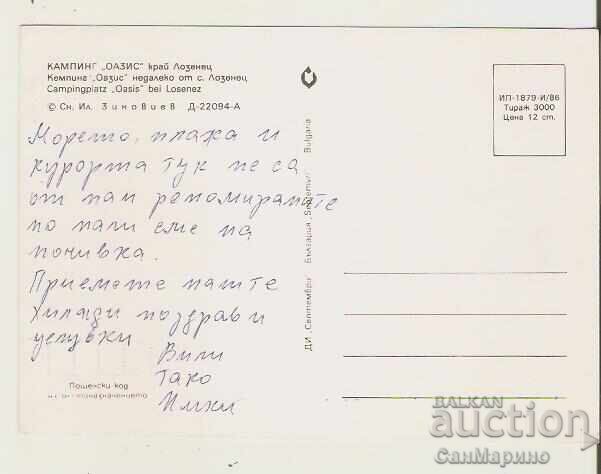 КАМПИНГ „ОАЗИС" край Лозенец
Кемпинг „Оазис" недалеко от с. Лозенец
Campingplatz „Oasis" bei Losenez
© Сн. Ил. Зиновиев Д-22094-А
ИП-1879-И/86
Тираж 3000
Цена 12 ст.
Морето, плажа и
курорта тук не са
от най реномираните
но нали сме на
почивка.
Приемете нашите
Хиляди поздрави и
целувки
Вили
Тако
ДИ „Септември" България „Septemvri" Bulgaria
Пощенски код
BALKAN
auction
СанМарино